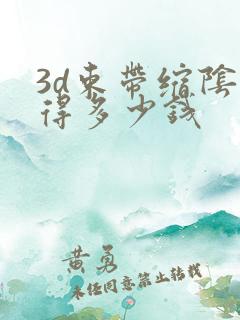 3d束带缩阴
得多少钱
黄勇
未经同意禁止转载